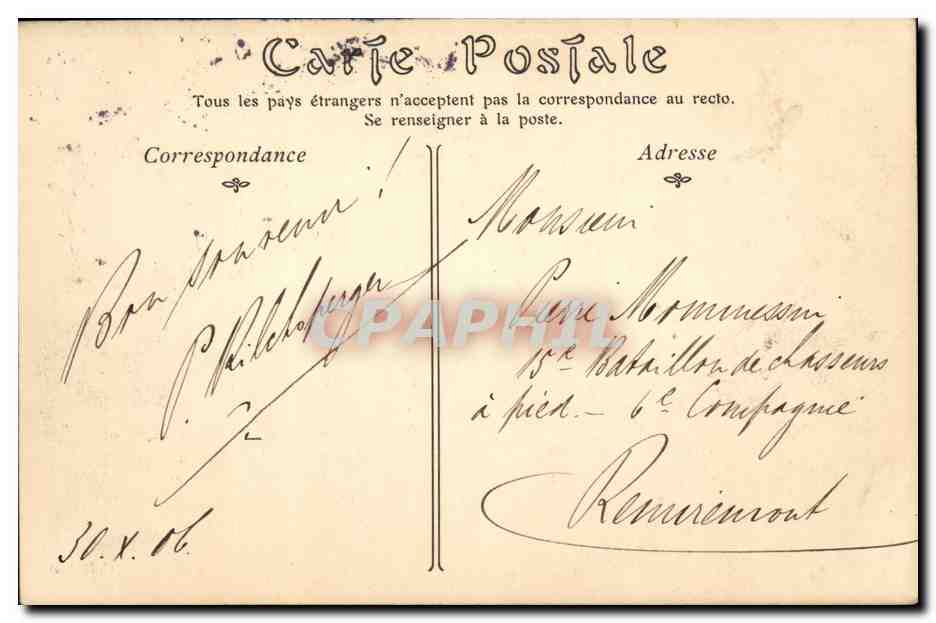 Carte Postale
Tous les pays étrangers n'acceptent pas la correspondance au recto.
Se renseigner à la poste.
Correspondance
Adresse
Bon souvenir !
P.
30.X.06
Monsieur
Pierre Mommessin
15e Bataillon de chasseurs
à pied. – 6e Compagnie
Remiremont
CPAPHIL